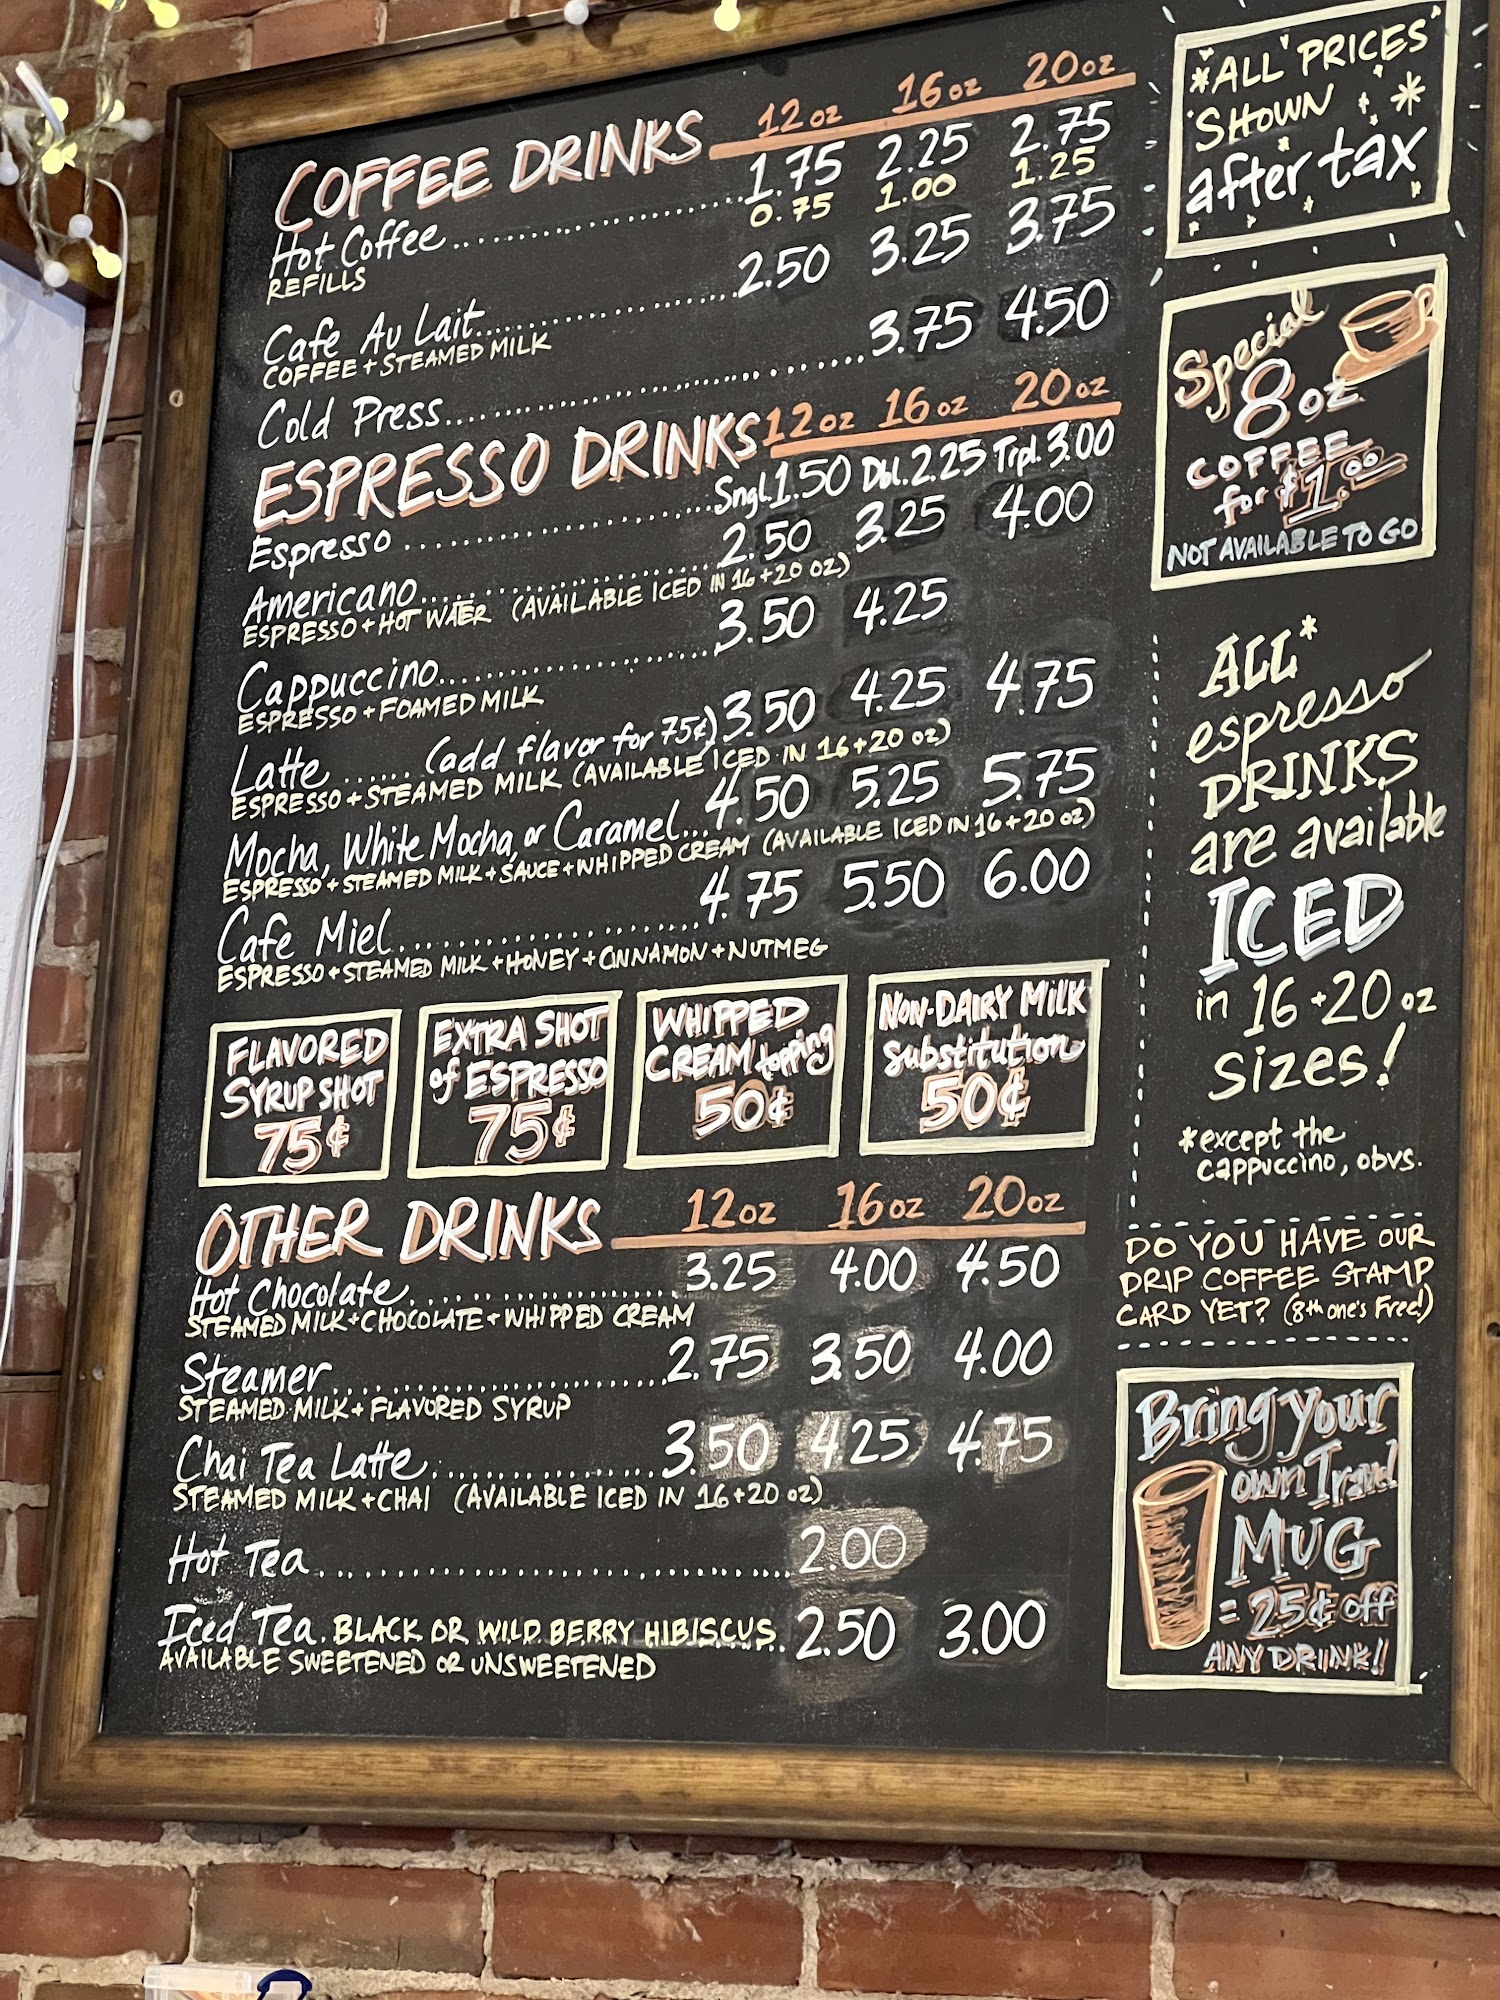 COFFEE DRINKS 12oz 16oz 20oz
Hot Coffee 1.75 2.25 2.75
REFILLS 0.75 1.00 1.25
Cafe Au Lait 2.50 3.25 3.75
COFFEE + STEAMED MILK
Cold Press 3.75 4.50
ESPRESSO DRINKS 12oz 16oz 20oz
Espresso Sngl. 1.50 Dbl. 2.25 Trpl. 3.00
Americano 2.50 3.25 4.00
ESPRESSO + HOT WAER (AVAILABLE ICED IN 16+20 oz)
Cappuccino 3.50 4.25
ESPRESSO + FOAMED MILK
Latte (add flavor for 75¢) 3.50 4.25 4.75
ESPRESSO + STEAMED MILK (AVAILABLE ICED IN 16+20 oz)
Mocha, White Mocha, or Caramel 4.50 5.25 5.75
ESPRESSO + STEAMED MILK + SAUCE + WHIPPED CREAM (AVAILABLE ICED IN 16+20 oz)
Cafe Miel 4.75 5.50 6.00
ESPRESSO + STEAMED MILK + HONEY + CINNAMON + NUTMEG
FLAVORED
SYRUP SHOT
75¢
EXTRA SHOT
of ESPRESSO
75¢
WHIPPED
CREAM topping
50¢
NON-DAIRY MILK
substitution
50¢
OTHER DRINKS 12oz 16oz 20oz
Hot Chocolate 3.25 4.00 4.50
STEAMED MILK + CHOCOLATE + WHIPPED CREAM
Steamer 2.75 3.50 4.00
STEAMED MILK + FLAVORED SYRUP
Chai Tea Latte 3.50 4.25 4.75
STEAMED MILK + CHAI (AVAILABLE ICED IN 16+20 oz)
Hot Tea 2.00
Iced Tea. BLACK OR WILD BERRY HIBISCUS 2.50 3.00
AVAILABLE SWEETENED OR UNSWEETENED
*ALL PRICES
SHOWN *
after tax
Special
8oz
COFFEE
for $1.00
NOT AVAILABLE TO GO
ALL*
espresso
DRINKS
are available
ICED
in 16+20 oz
sizes!
*except the
cappuccino, obvs.
DO YOU HAVE OUR
DRIP COFFEE STAMP
CARD YET? (8th one's Free!)
Bring your
own Travel
MUG
= 25¢ off
ANY DRINK!!